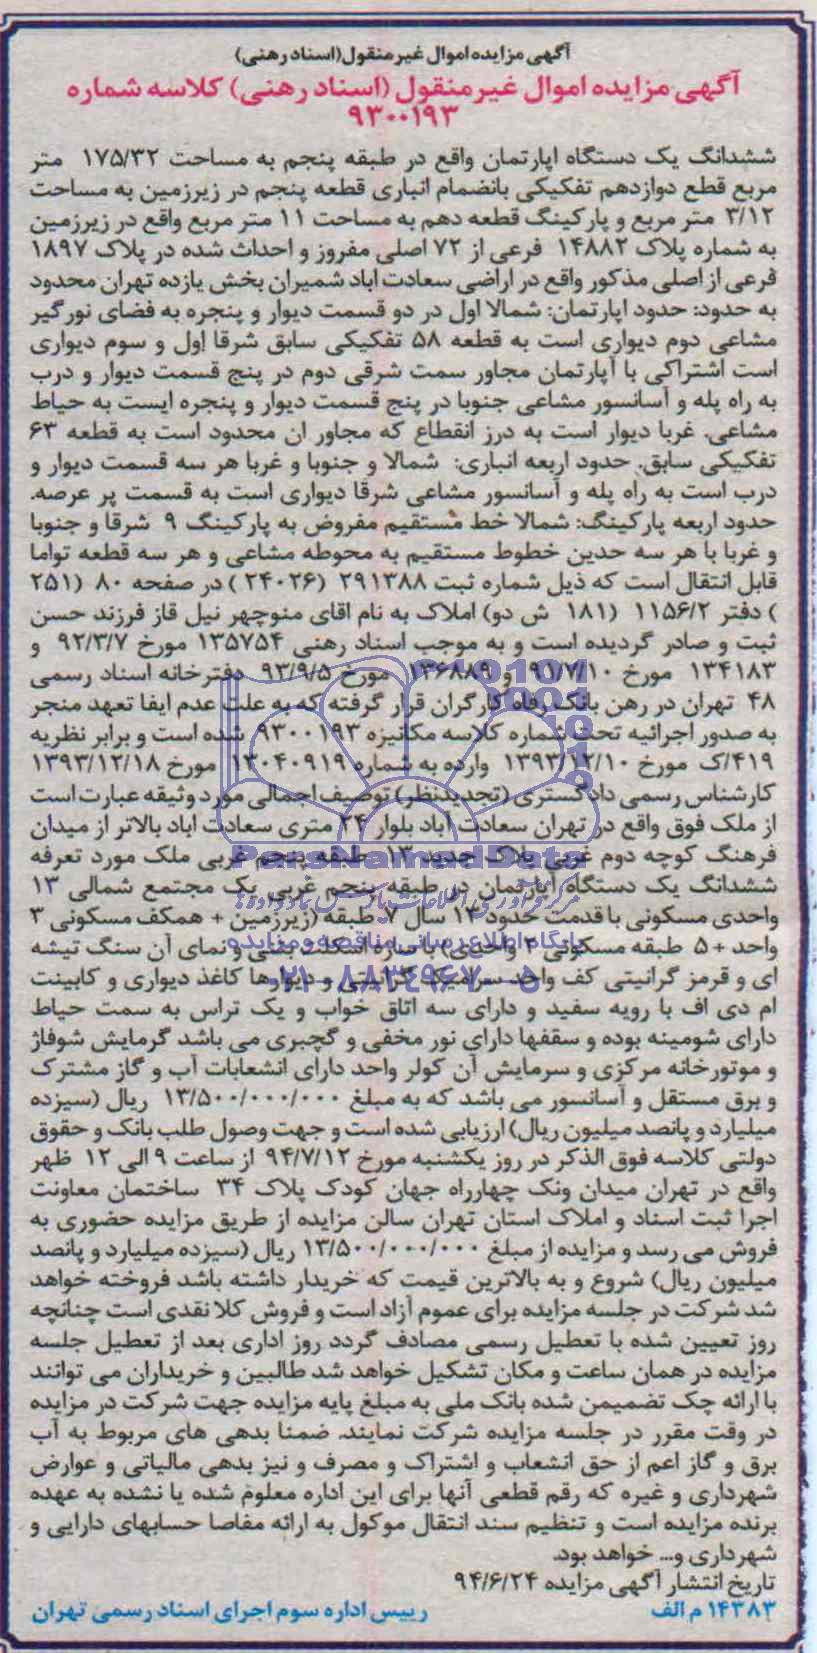 آگهی مزایده اموال غیر منقول(اسناد رهنی)
آگهی مزایده اموال غیر منقول (اسناد رهنی) کلاسه شماره
۹۳۰۰۱۹۳
ششدانگ یک دستگاه اپارتمان واقع در طبقه پنجم به مساحت ۱۷۵/۳۲ متر
مربع قطع دوازدهم تفکیکی بانضمام انباری قطعه پنجم در زیرزمین به مساحت
۳/۱۲ متر مربع و پارکینگ قطعه دهم به مساحت ۱۱ متر مربع واقع در زیرزمین
به شماره پلاک ۱۴۸۸۲ فرعی از ۷۲ اصلی مفروز و احداث شده در پلاک ۱۸۹۷
فرعی از اصلی مذکور واقع در اراضی سعادت اباد شمیران بخش یازده تهران محدود
به حدود: حدود اپارتمان: شمالا اول در دو قسمت دیوار و پنجره به فضای نورگیر
مشاعی دوم دیواری است به قطعه ۵۸ تفکیکی سابق شرقا اول و سوم دیواری
است اشتراکی با آپارتمان مجاور سمت شرقی دوم در پنج قسمت دیوار و درب
به راه پله و آسانسور مشاعی جنوبا در پنج قسمت دیوار و پنجره ایست به حیاط
مشاعی. غربا دیوار است به درز انقطاع که مجاور ان محدود است به قطعه ۶۳
تفکیکی سابق. حدود اربعه انباری: شمالا و جنوبا و غربا هر سه قسمت دیوار و
درب است به راه پله و آسانسور مشاعی شرقا دیواری است به قسمت پر عرصه.
حدود اربعه پارکینگ: شمالا خط مستقیم مفروض به پارکینگ ۹ شرقا و جنوبا
و غربا با هر سه حدین خطوط مستقیم به محوطه مشاعی و هر سه قطعه تواما
قابل انتقال است که ذیل شماره ثبت ۲۹۱۳۸۸ (۲۴۰۲۶ ) در صفحه ۸۰ (۲۵۱
) دفتر ۱۱۵۶/۲ (۱۸۱ ش دو) املاک به نام اقای منوچهر نیل قاز فرزند حسن
ثبت و صادر گردیده است و به موجب اسناد رهنی ۱۳۵۷۵۴ مورخ ۹۲/۳/۷ و
۱۳۴۱۸۳ مورخ ۹۱/۷/۱۰ و ۱۳۶۸۸۹ مورخ ۹۳/۹/۵ دفترخانه اسناد رسمی
۴۸ تهران در رهن بانک رفاه کارگران قرار گرفته که به علت عدم ایفا تعهد منجر
به صدور اجرائیه تحت شماره کلاسه مکانیزه ۹۳۰۰۱۹۳ شده است و برابر نظریه
۴۱۹/ک مورخ ۱۳۹۳/۱۲/۱۰ وارده به شماره ۱۳۰۴۰۹۱۹ مورخ ۱۳۹۳/۱۲/۱۸
کارشناس رسمی دادگستری (تجدیدنظر) توصیف اجمالی مورد وثیقه عبارت است
از ملک فوق واقع در تهران سعادت آباد بلوار ۲۴ متری سعادت اباد بالاتر از میدان
فرهنگ کوچه دوم غربی پلاک جدید ۱۳ طبقه پنجم غربی ملک مورد تعرفه
ششدانگ یک دستگاه آپارتمان در طبقه پنجم غربی یک مجتمع شمالی ۱۳
واحدی مسکونی با قدمت حدود ۱۳ سال ۷ طبقه (زیرزمین + همکف مسکونی ۳
واحد + ۵ طبقه مسکونی ۲ واحدی) با سازه اسکلت بتنی و نمای آن سنگ تیشه
ای و قرمز گرانیتی کف واحد سرامیک گرانیتی و دیوارها کاغذ دیواری و کابینت
ام دی اف با رویه سفید و دارای سه اتاق خواب و یک تراس به سمت حیاط
دارای شومینه بوده و سقفها دارای نور مخفی و گچبری می باشد گرمایش شوفاژ
و موتورخانه مرکزی و سرمایش آن کولر واحد دارای انشعابات آب و گاز مشترک
و برق مستقل و آسانسور می باشد که به مبلغ ۱۳/۵۰۰/۰۰۰/۰۰۰ ریال (سیزده
میلیارد و پانصد میلیون ریال) ارزیابی شده است و جهت وصول طلب بانک و حقوق
دولتی کلاسه فوق الذکر در روز یکشنبه مورخ ۹۴/۷/۱۲ از ساعت ۹ الی ۱۲ ظهر
واقع در تهران میدان ونک چهارراه جهان کودک پلاک ۳۴ ساختمان معاونت
اجرا ثبت اسناد و املاک استان تهران سالن مزایده از طریق مزایده حضوری به
فروش می رسد و مزایده از مبلغ ۱۳/۵۰۰/۰۰۰/۰۰۰ ریال (سیزده میلیارد و پانصد
میلیون ریال) شروع و به بالاترین قیمت که خریدار داشته باشد فروخته خواهد
شد شرکت در جلسه مزایده برای عموم آزاد است و فروش کلا نقدی است چنانچه
روز تعیین شده با تعطیل رسمی مصادف گردد روز اداری بعد از تعطیل جلسه
مزایده در همان ساعت و مکان تشکیل خواهد شد طالبین و خریداران می توانند
با ارائه چک تضمیمن شده بانک ملی به مبلغ پایه مزایده جهت شرکت در مزایده
در وقت مقرر در جلسه مزایده شرکت نمایند. ضمنا بدهی های مربوط به آب
برق و گاز اعم از حق انشعاب و اشتراک و مصرف و نیز بدهی مالیاتی و عوارض
شهرداری و غیره که رقم قطعی آنها برای این اداره معلوم شده یا نشده به عهده
برنده مزایده است و تنظیم سند انتقال موکول به ارائه مفاصا حسابهای دارایی و
شهرداری و... خواهد بود.
تاریخ انتشار آگهی مزایده ۹۴/۶/۲۴
۱۴۳۸۳ م الف رییس اداره سوم اجرای اسناد رسمی تهران
ParsNamadData
پایگاه اطلاع رسانی مناقصه و مزایده
۰۲۱-۸۸۳۴۹۶۷۰-۵